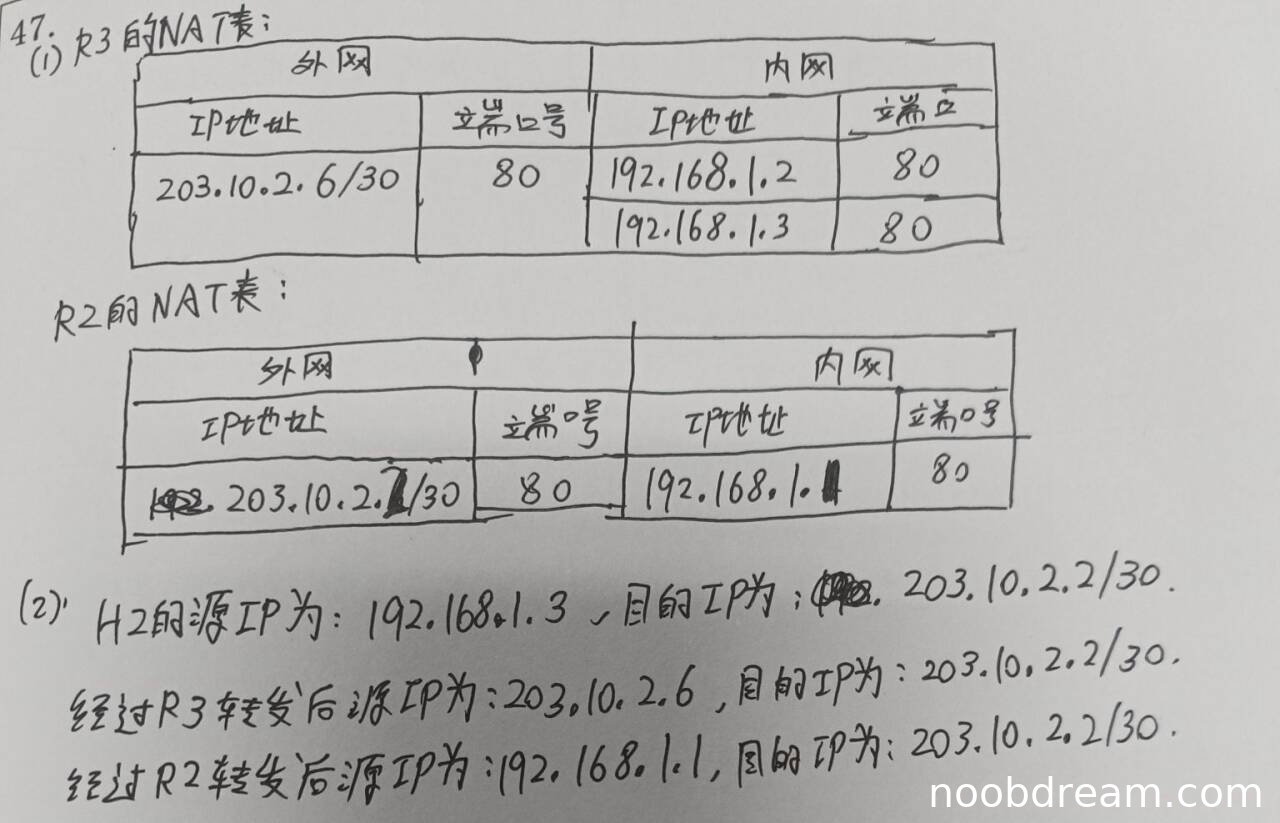 47.
(1) R3的NAT表:
外网 内网
IP地址 端口号 IP地址 端口
203.10.2.6/30 80 192.168.1.2 80
192.168.1.3 80
R2的NAT表:
外网 内网
IP地址 端口号 IP地址 端口号
203.10.2. /30 80 192.168.1.1 80
(2). H2的源IP为: 192.168.1.3, 目的IP为: 203.10.2.2/30.
经过R3转发后源IP为:203.10.2.6, 目的IP为: 203.10.2.2/30.
经过R2转发后源IP为:192.168.1.1, 目的IP为: 203.10.2.2/30.
noobdream.com